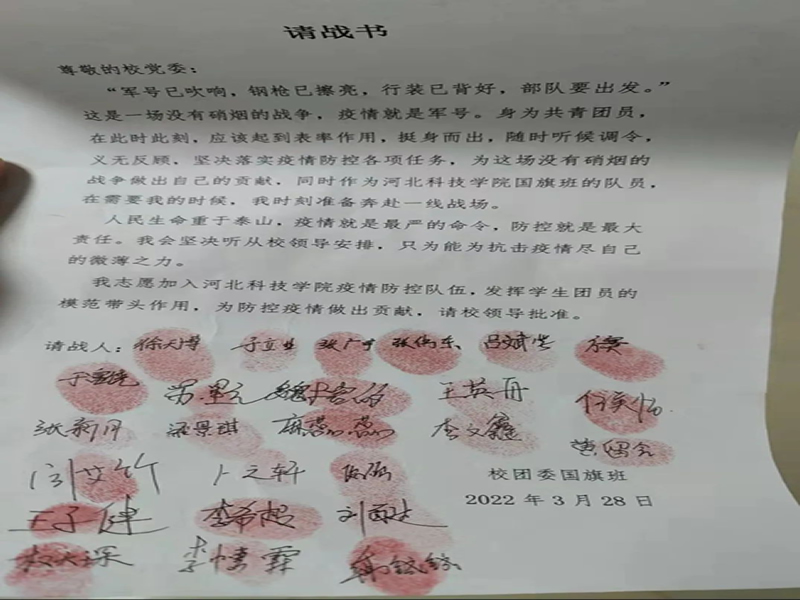 请战书
尊敬的校党委：
“军号已吹响，钢枪已擦亮，行装已背好，部队要出发。”
这是一场没有硝烟的战争，疫情就是军号。身为共青团员，
在此时此刻，应该起到表率作用，挺身而出，随时听候调令，
义无反顾，坚决落实疫情防控各项任务，为这场没有硝烟的
战争做出自己的贡献，同时作为河北科技学院国旗班的队员，
在需要我的时候，我时刻准备奔赴一线战场。
人民生命重于泰山，疫情就是最严的命令，防控就是最大
责任。我会坚决听从校领导安排，只为能为抗击疫情尽自己
的微薄之力。
我志愿加入河北科技学院疫情防控队伍，发挥学生团员的
模范带头作用，为防控疫情做出贡献，请校领导批准。
请战人：徐天博 吕斌生
王英冉
张新月 梁景琪 李文鑫
闫艾竹 卜之轩
校团委国旗班
2022 年 3 月 28 日
王子健 李希超
李倩霖